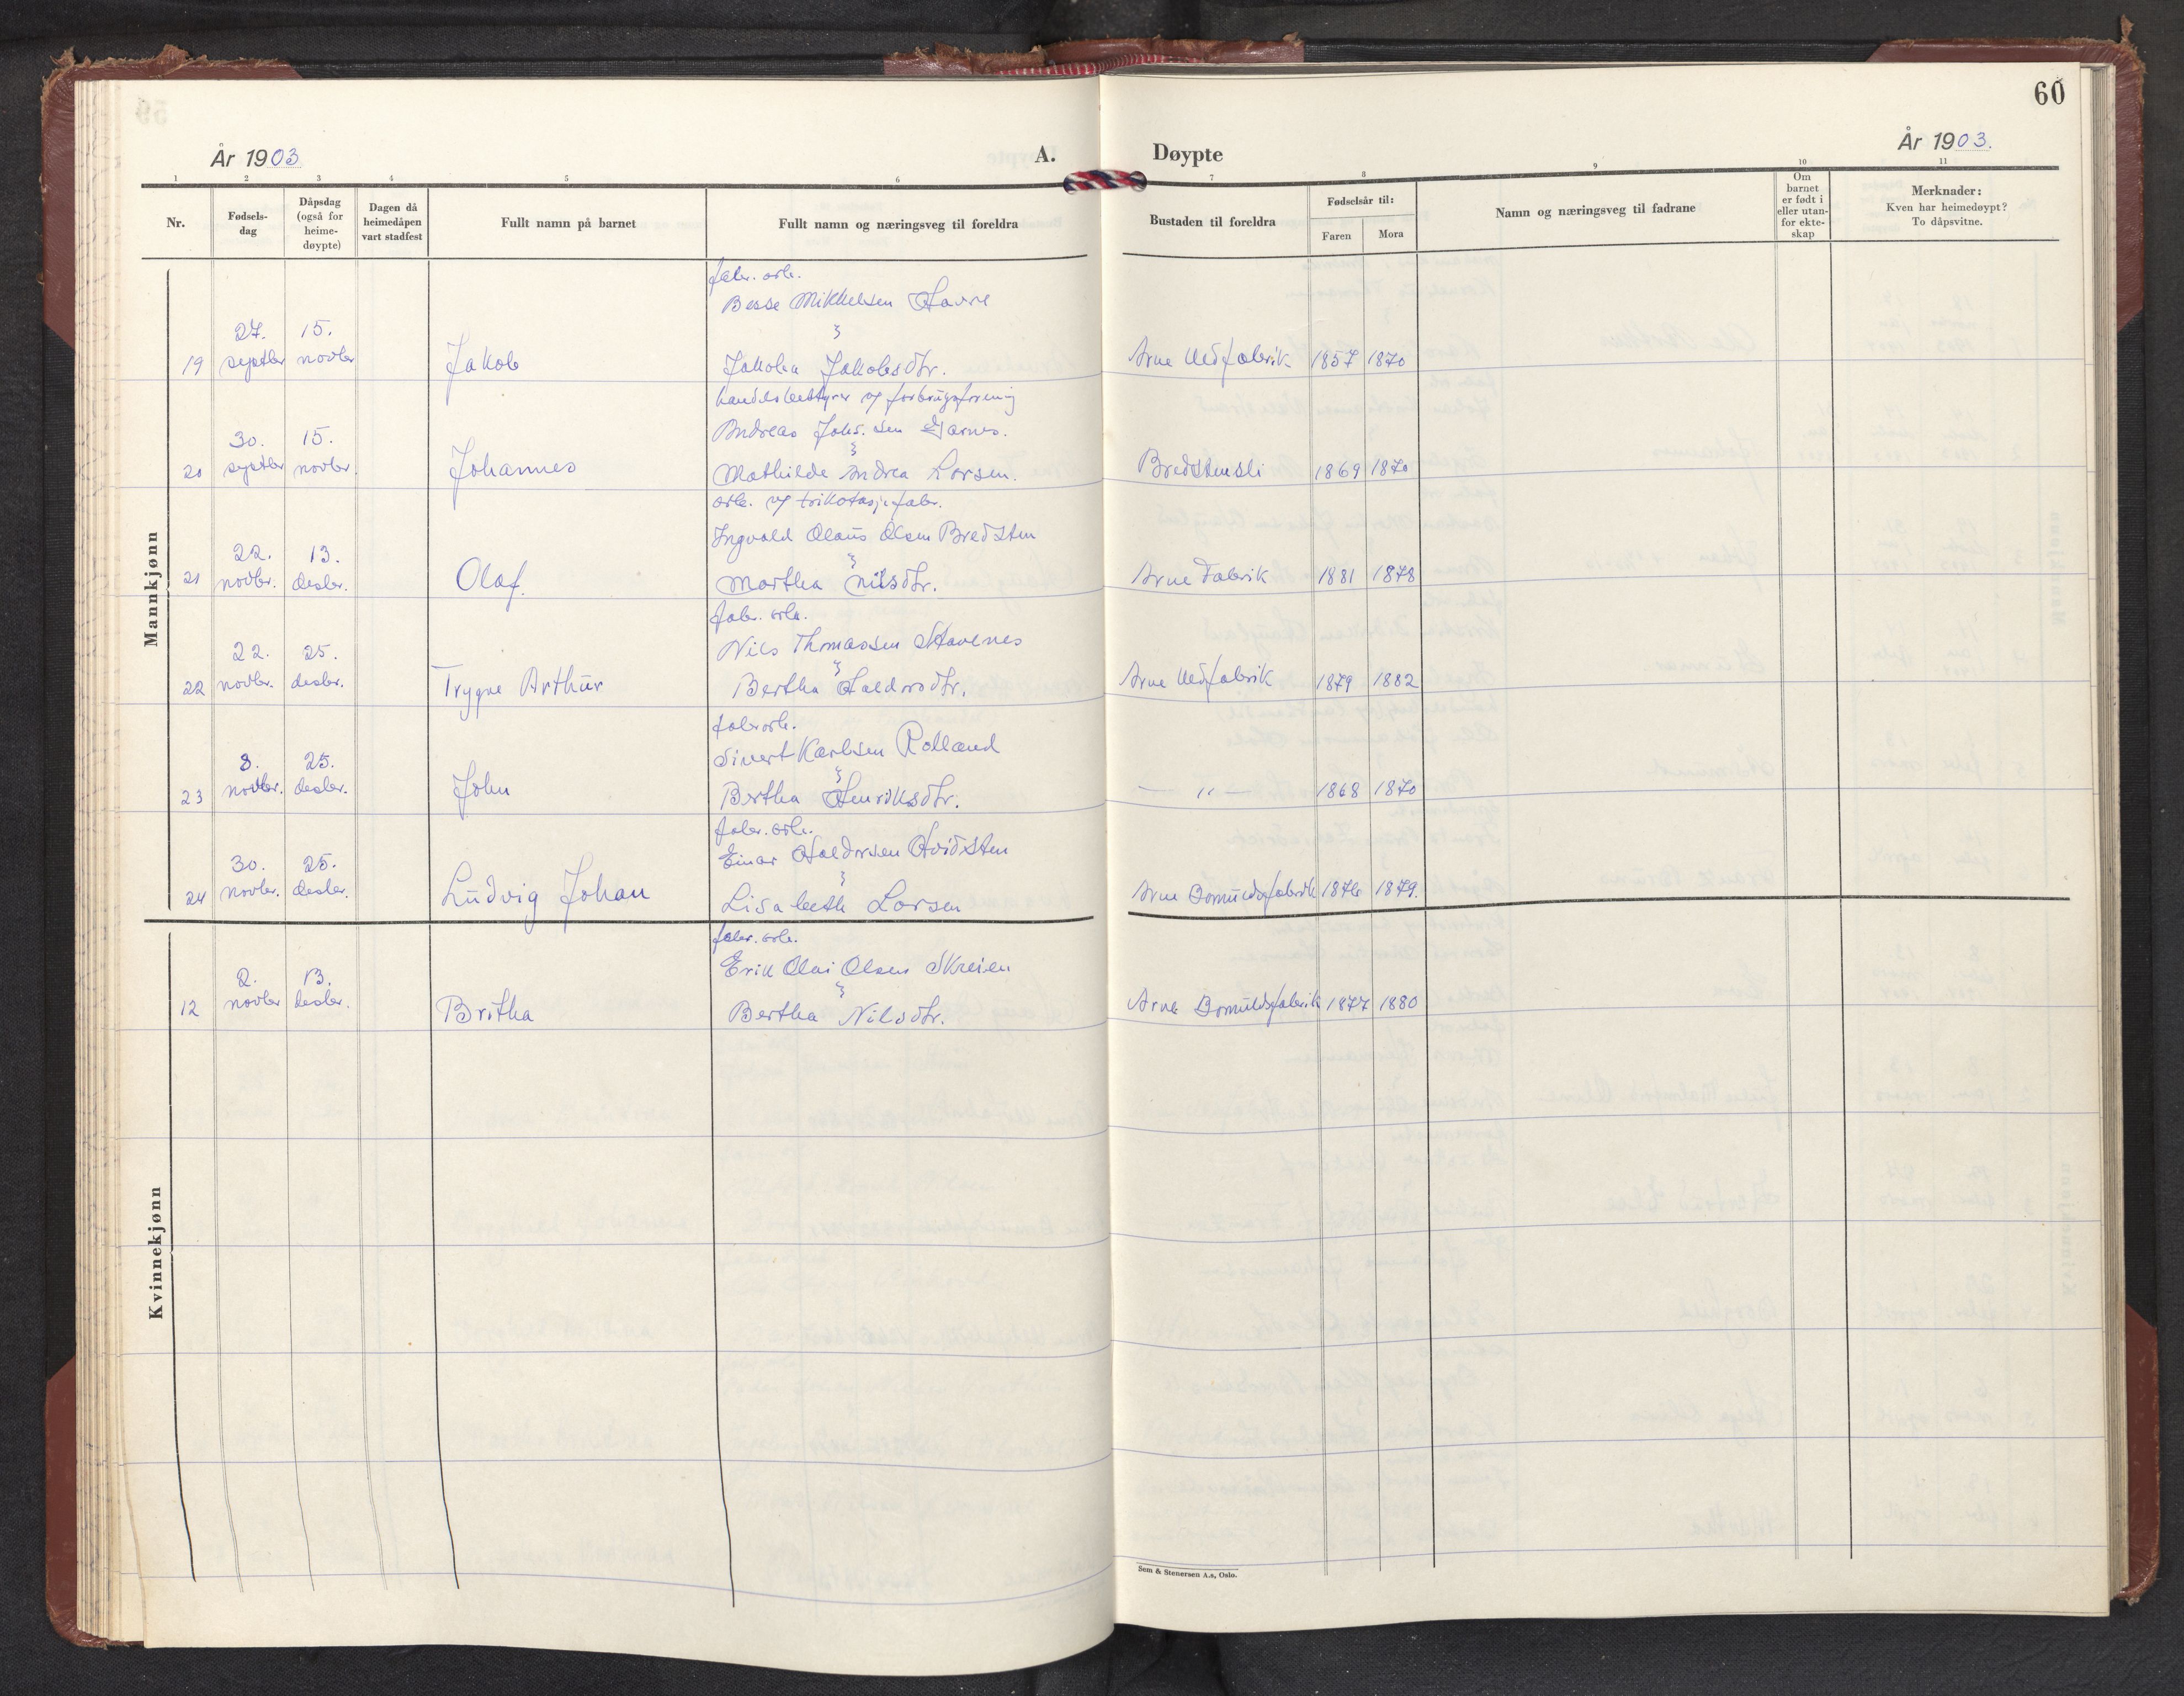 60
År 1903
A.
Døypte
År 1903.
1 2 3 4 5 6 7 8 9 10 11
Nr.
Fødsels-
dag
Dåpsdag
(også for
heime-
døypte)
Dagen då
heimedåpen
vart stadfest
Fullt namn på barnet
Fullt namn og næringsveg til foreldra
Bustaden til foreldra
Fødselsår til:
Faren Mora
Namn og næringsveg til fadrane
Om
barnet
er født i
eller utan-
for ekte-
skap
Merknader:
Kven har heimedøypt?
To dåpsvitne.
Mannkjønn
fabr. arb.
Besse Mikkelsen Havre
27. 15.
19 septbr novbr Jakob Jakoba Jakobsdtr. Arne Uldfabrik 1857 1870
handelsbestyrer og forbrugsforening
Andreas Johs.sen Garnes.
30. 15.
20 septbr novbr. Johannes Mathilde Andrea Larsen. Bredstensli 1869 1870
arb. og trikotasjefabr.
Ingvald Olaus Olsen Bredsten
22. 13.
21 novbr. desbr. Olaf. Martha Nilsdtr. Arne Fabrik 1881 1878
fabr. arb.
Nils Thomassen Stavenes
22. 25.
22 novbr. desbr. Trygve Arthur Bertha Haldorsdtr. Arne Uldfabrik 1879 1882
fabr arb.
Sivert Karlsen Rolland
8. 25.
23 novbr. desbr. John Bertha Henriksdtr. — " — 1868 1870
fabr. arb.
Einar Haldorsen Hvidsten
30. 25.
24 novbr. desbr. Ludvig Johan Lisabeth Larsen Arne Bomuldsfabrik 1876 1879.
Kvinnekjønn
fabr. arb.
Erik Olai Olsen Skreien
2. 13.
12 novbr desbr. Britha Bertha Nilsdtr. Arne Bomuldsfabrik 1877 1880
Sem & Stenersen A.s, Oslo.